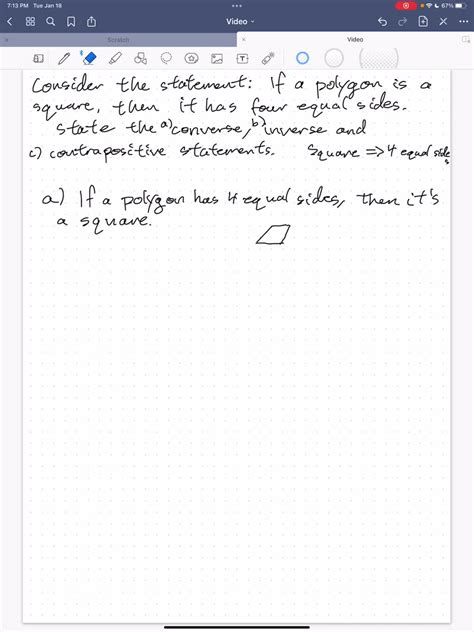 7:13 PM Tue Jan 18
67%
Video
Scratch
Video
Consider the statement: If a polygon is a
square, then it has four equal sides.
State the a) converse, b) inverse and
c) contrapositive statements. Square => 4 equal sides
a) If a polygon has 4 equal sides, then it's
a square.